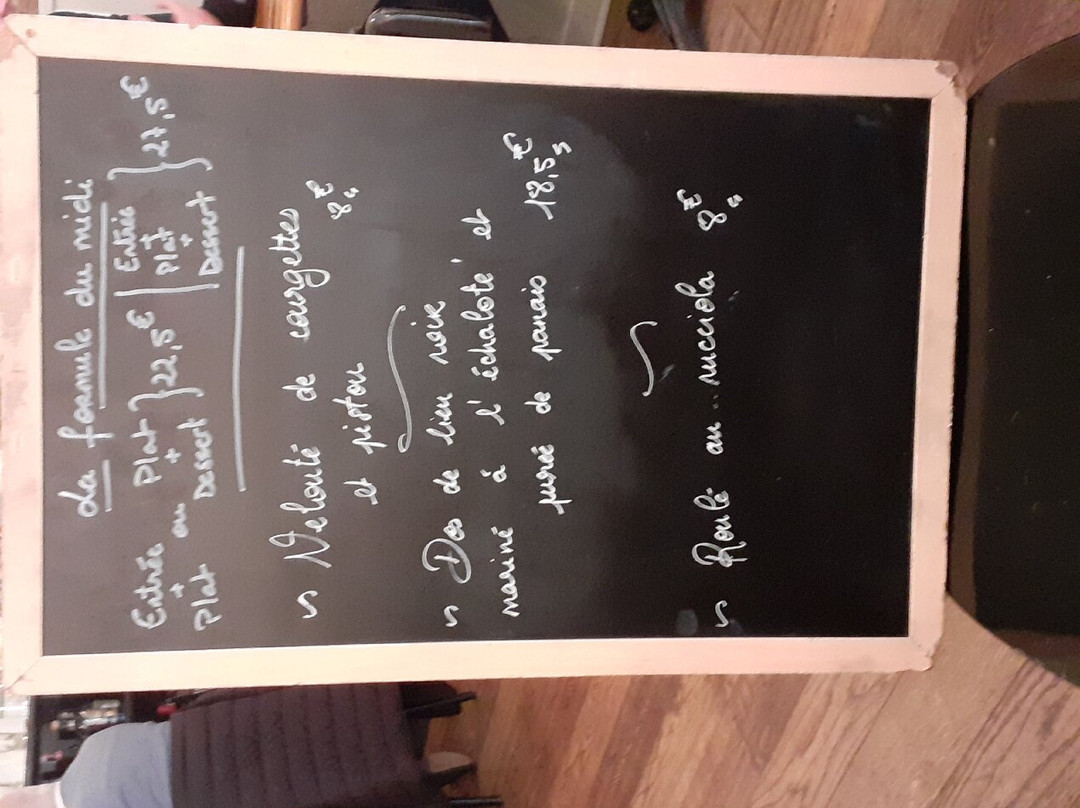 La formule du midi
Entrée + Plat } 22,5€ | Entrée + Plat + Dessert } 27,5€
ou
Plat + Dessert
~ Velouté de courgettes
et pistou 8€
~ Dos de lieu noir
mariné à l'échalote et
purée de panais 18,5€
~ Roulé au nucciola 8€